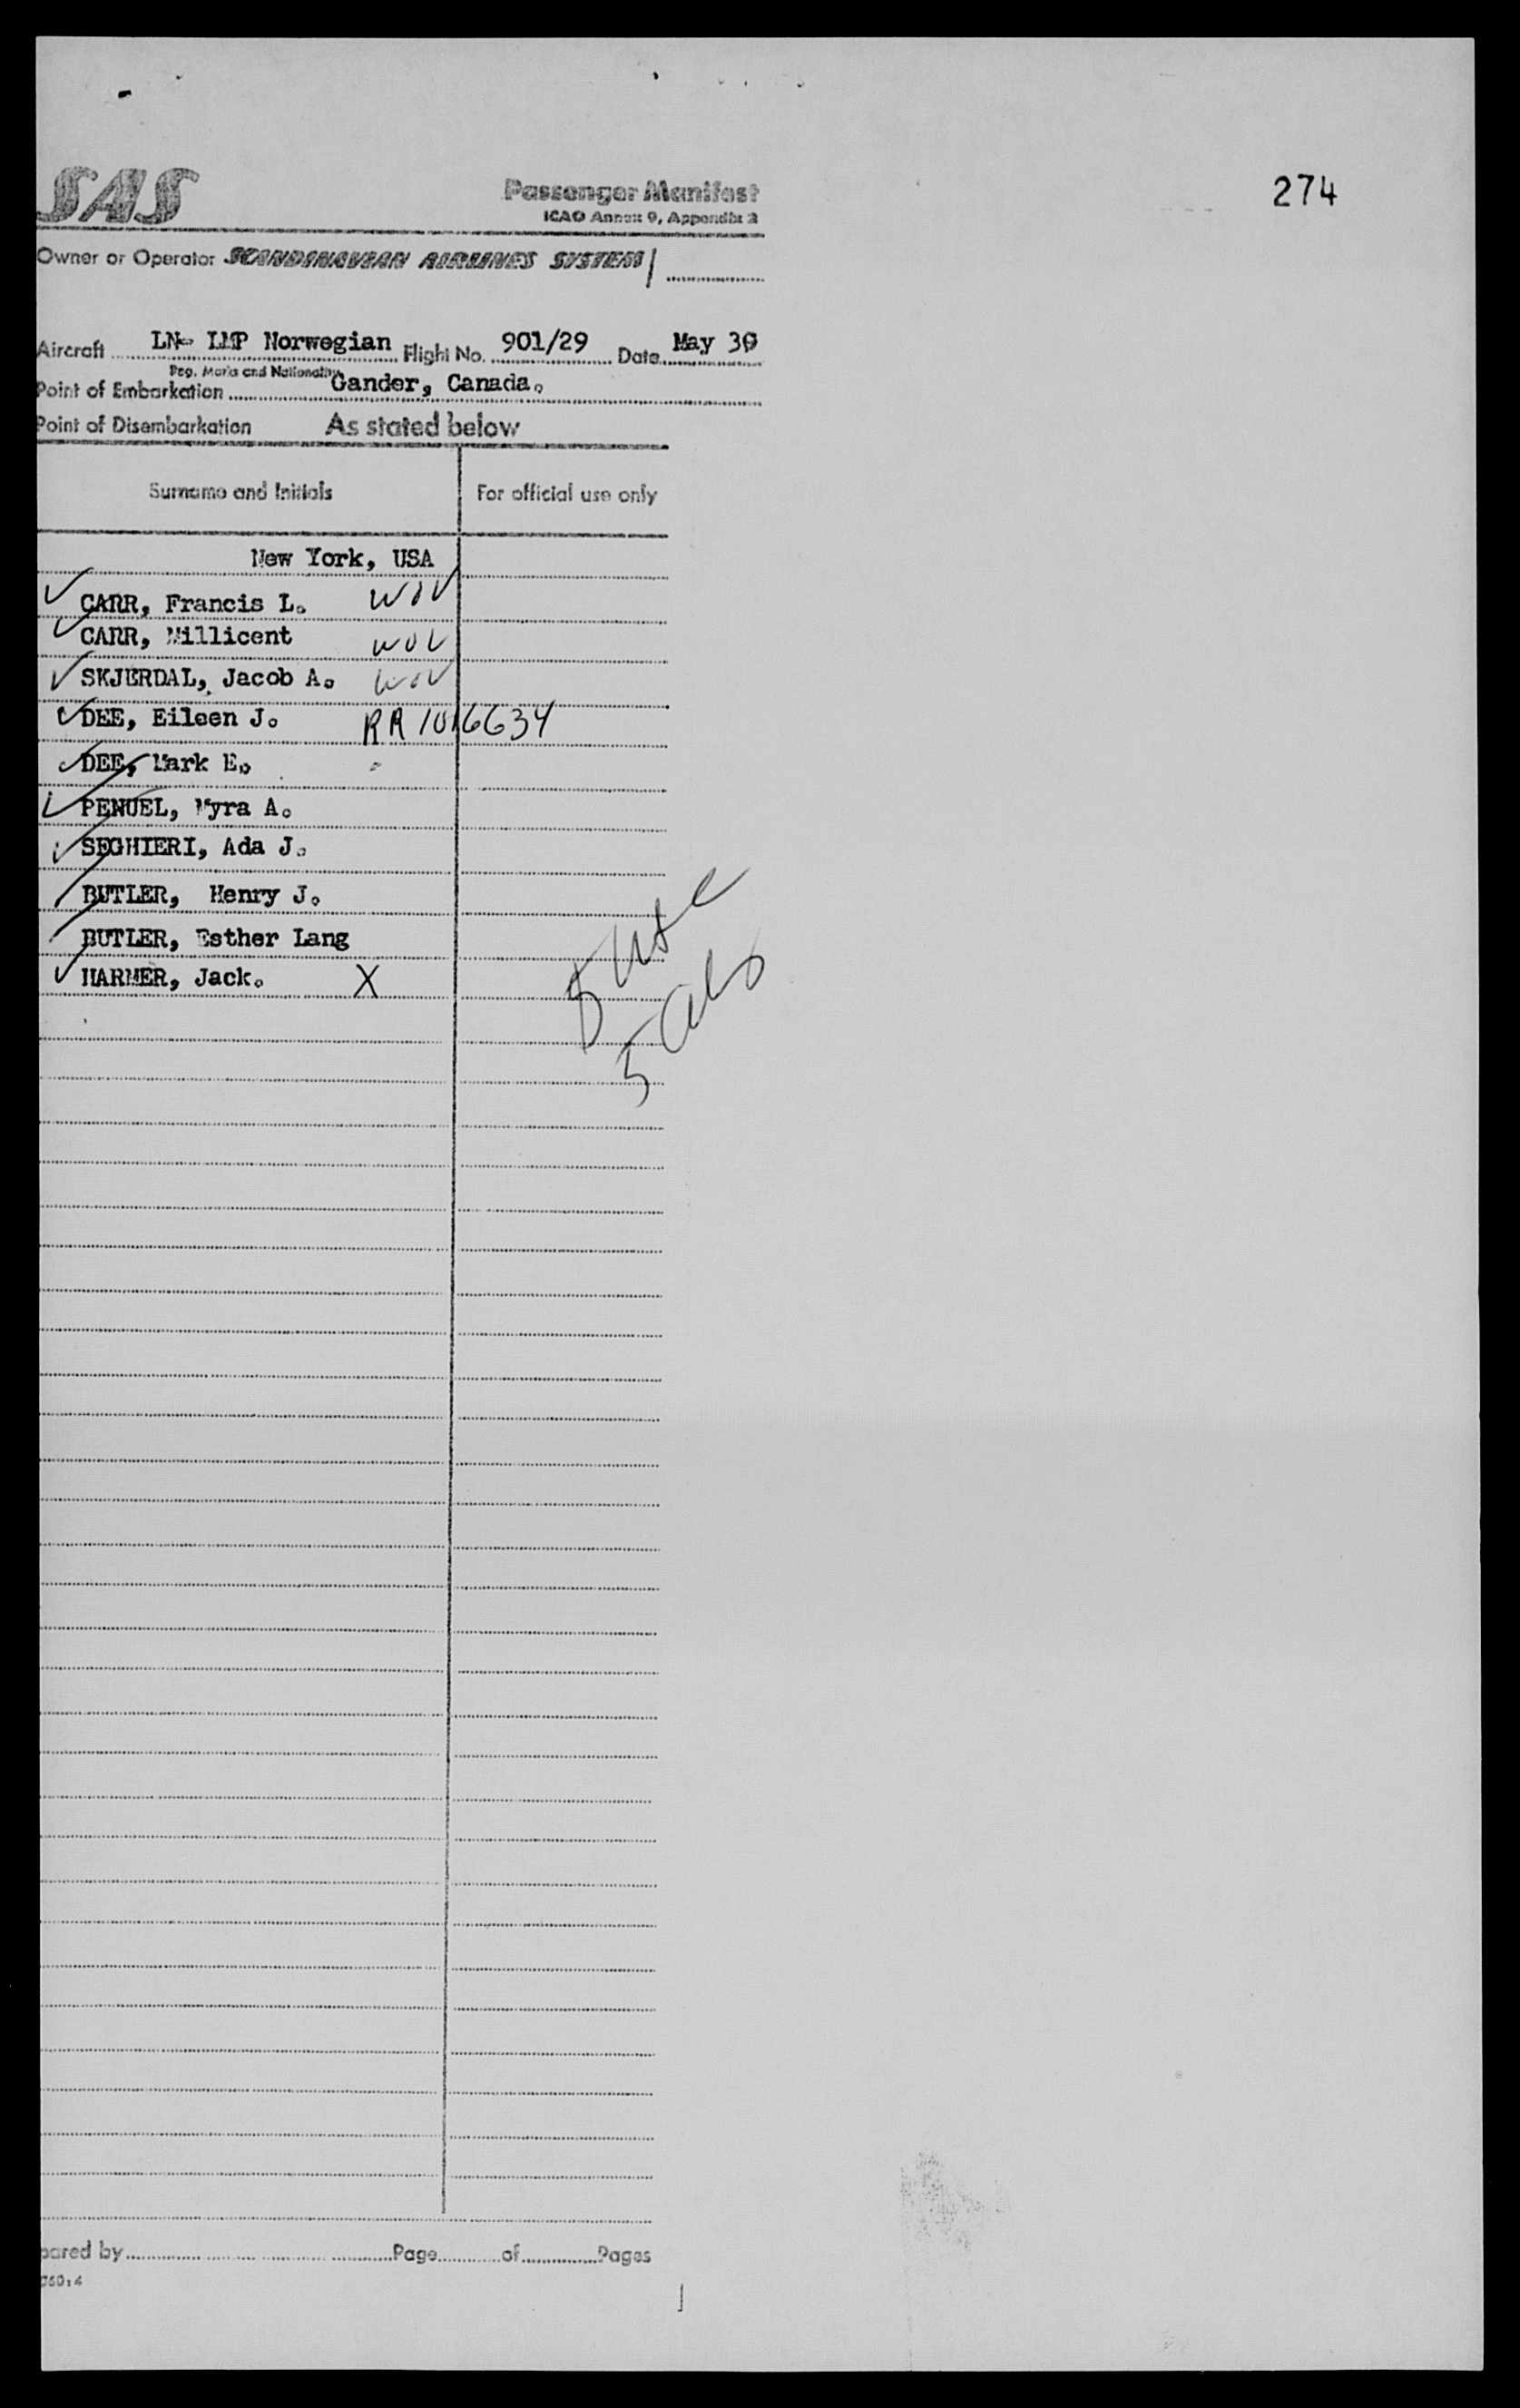 274
SAS
Passenger Manifest
ICAO Annex 9, Appendix 3
Owner or Operator SCANDINAVIAN AIRLINES SYSTEM /
Aircraft LN- LMP Norwegian Flight No. 901/29 Date May 30
Reg. Marks and Nationality
Point of Embarkation Gander, Canada.
Point of Disembarkation As stated below
Surname and Initials For official use only
New York, USA
CARR, Francis L. WOV
CARR, Millicent WOV
SKJERDAL, Jacob A. WOV
DEE, Eileen J. RR 1016634
DEE, Mark E.
PENUEL, Myra A.
SEGHIERI, Ada J.
BUTLER, Henry J.
BUTLER, Esther Lang
HARMER, Jack. X
5
5
pared by Page of Pages
060:4